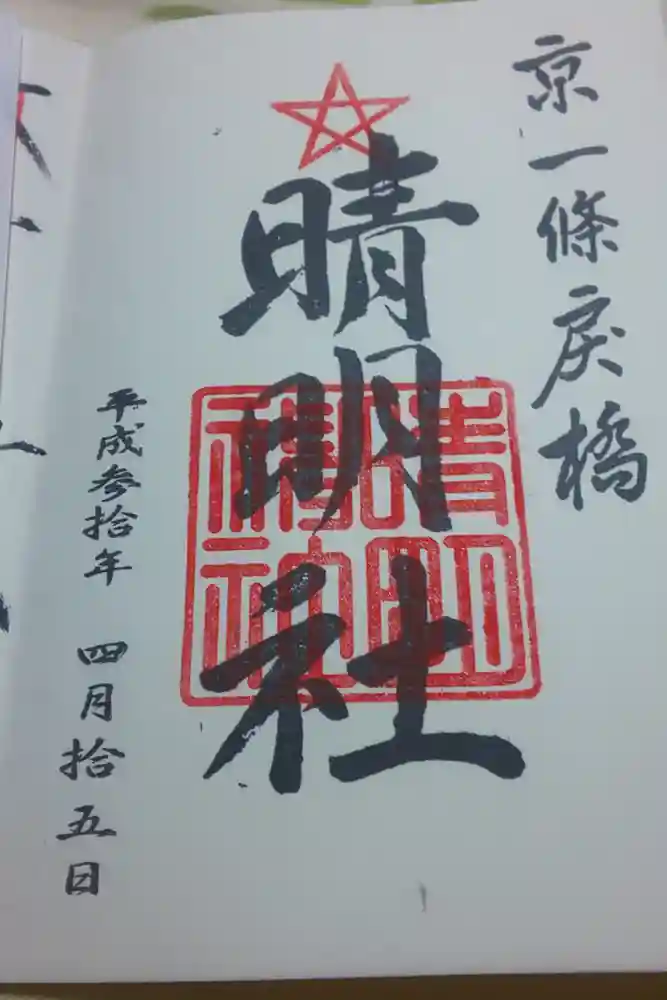 京一條戻橋
晴明社
平成参拾年 四月拾五日